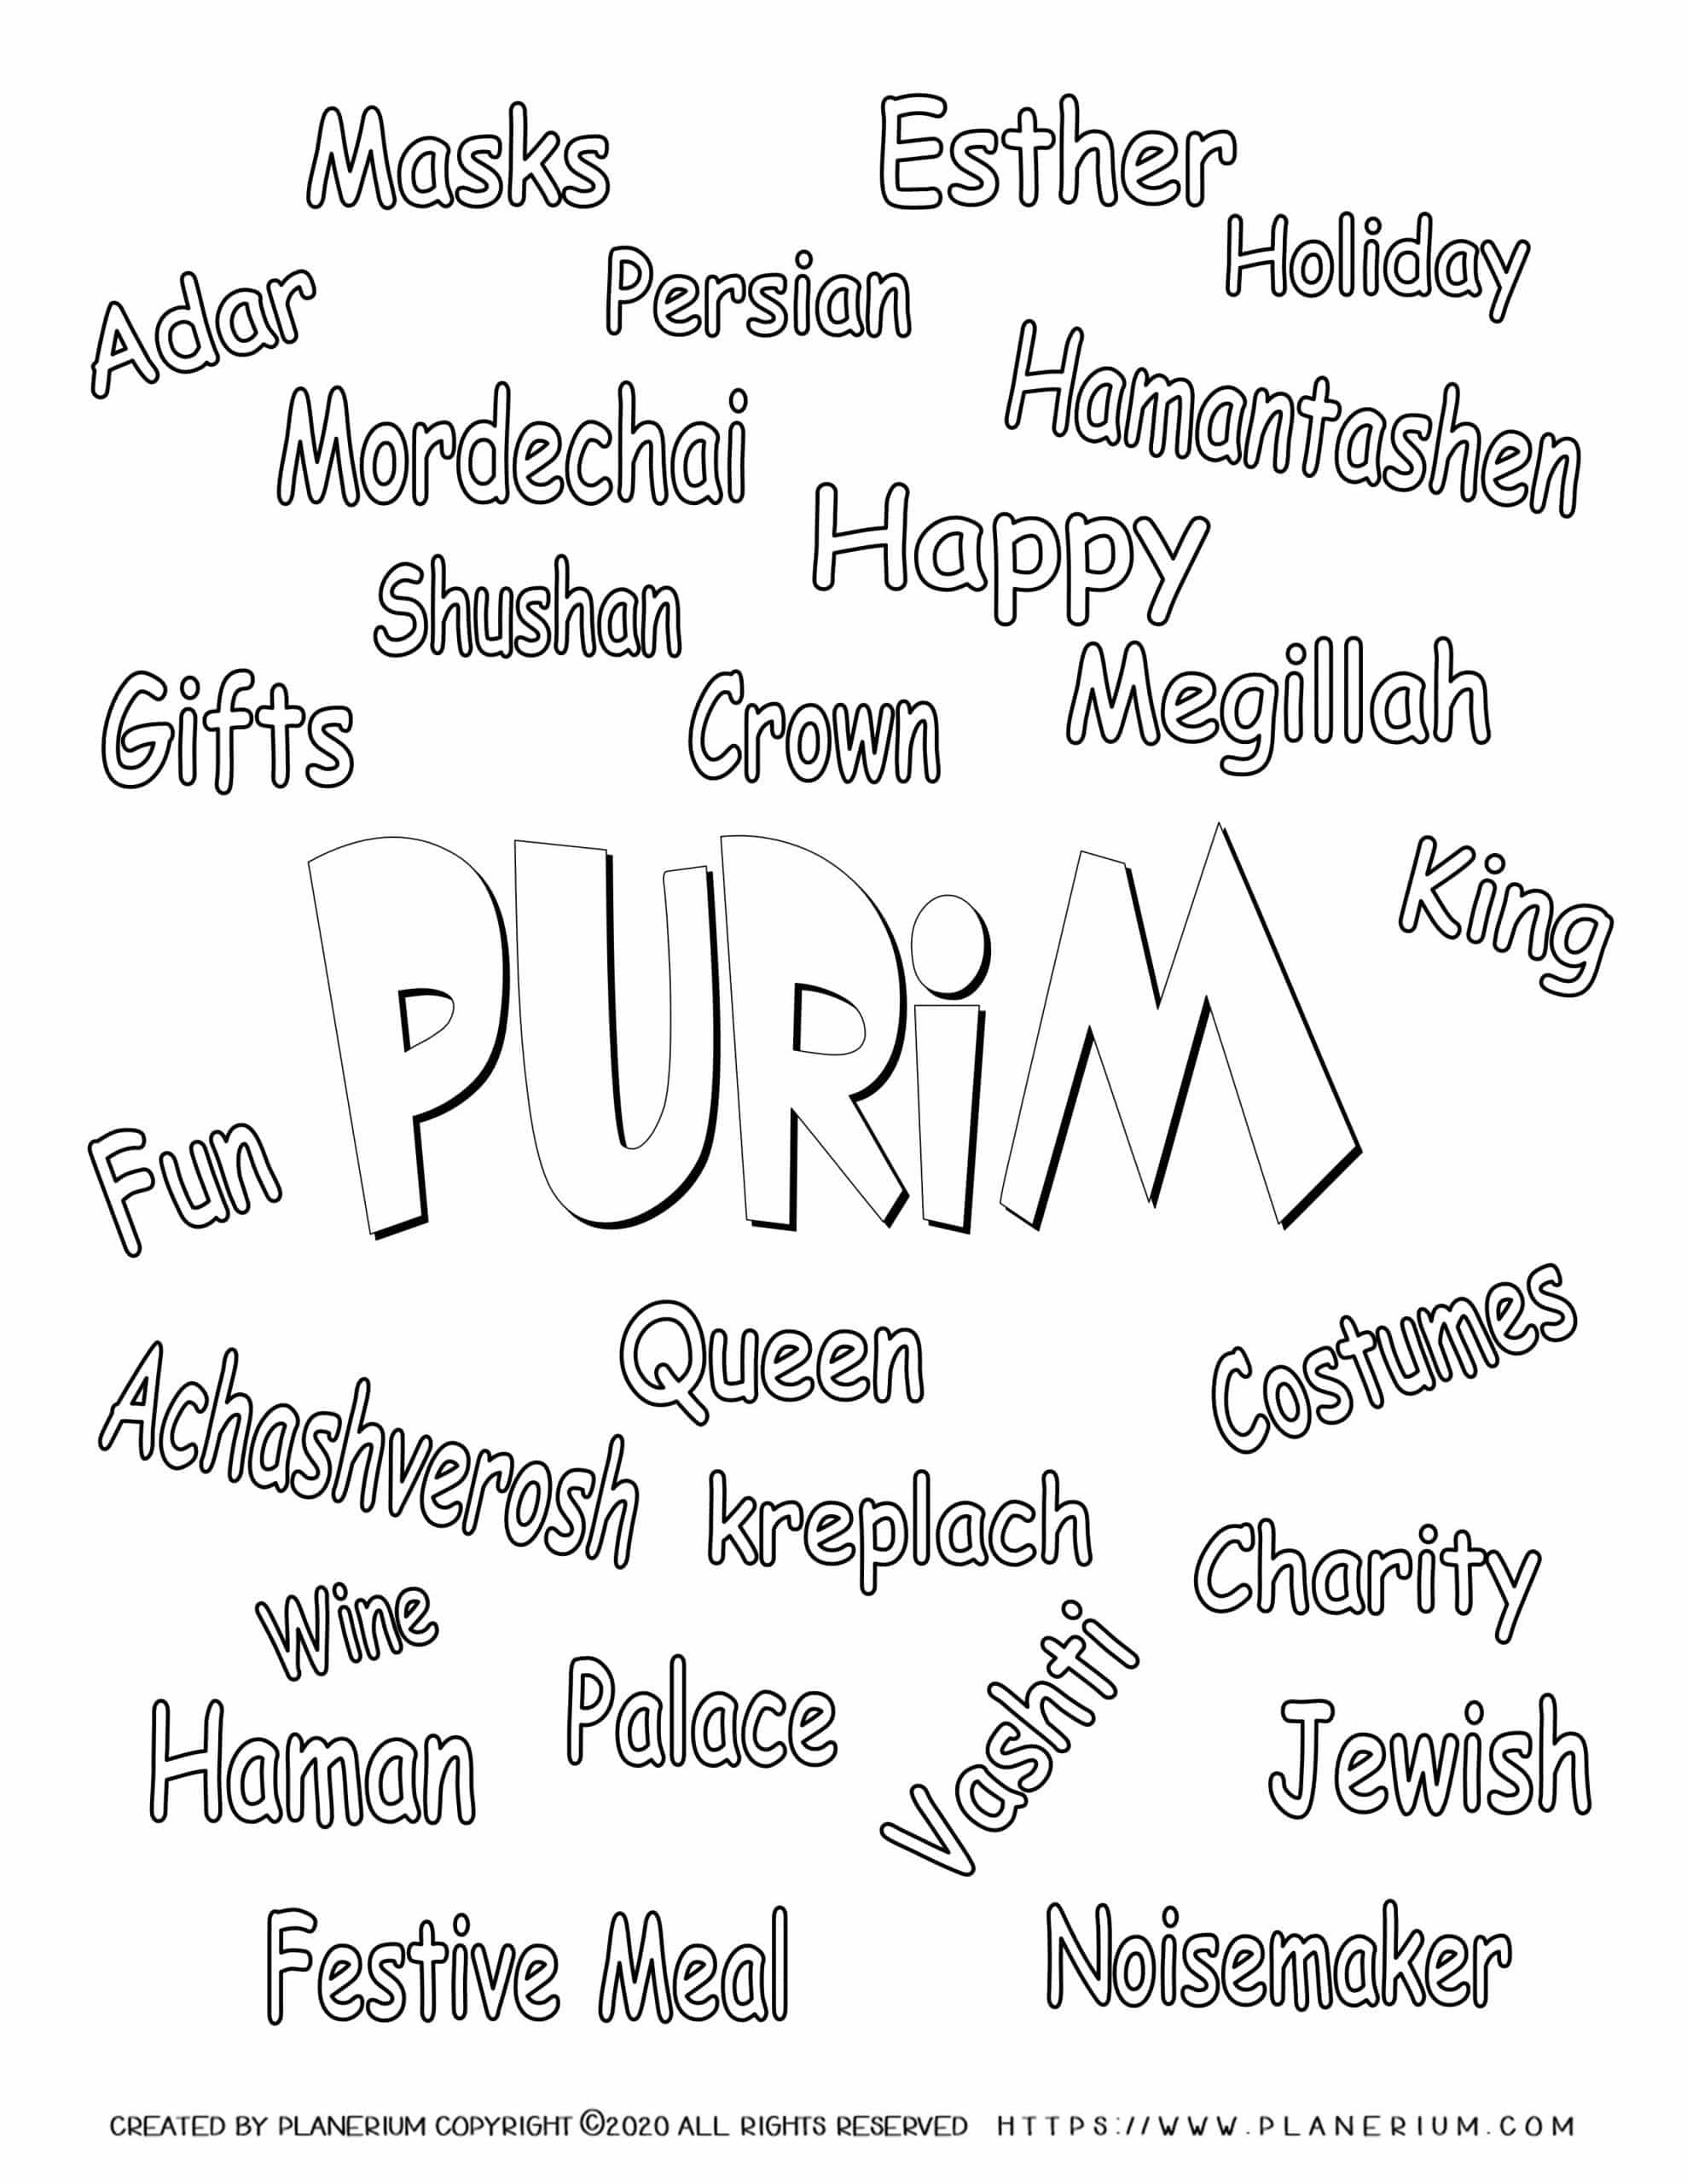 Masks Esther
Holiday
Adar Persian
Mordechai Hamantashen
Happy
Shushan
Gifts Crown Megillah
PURiM King
Fun
Queen Costumes
Achashverosh
kreplach Charity
Wine
Palace Vashti
Haman Jewish
Festive Meal Noisemaker
CREATED BY PLANERIUM COPYRIGHT ©2020 ALL RIGHTS RESERVED HTTPS://WWW.PLANERIUM.COM